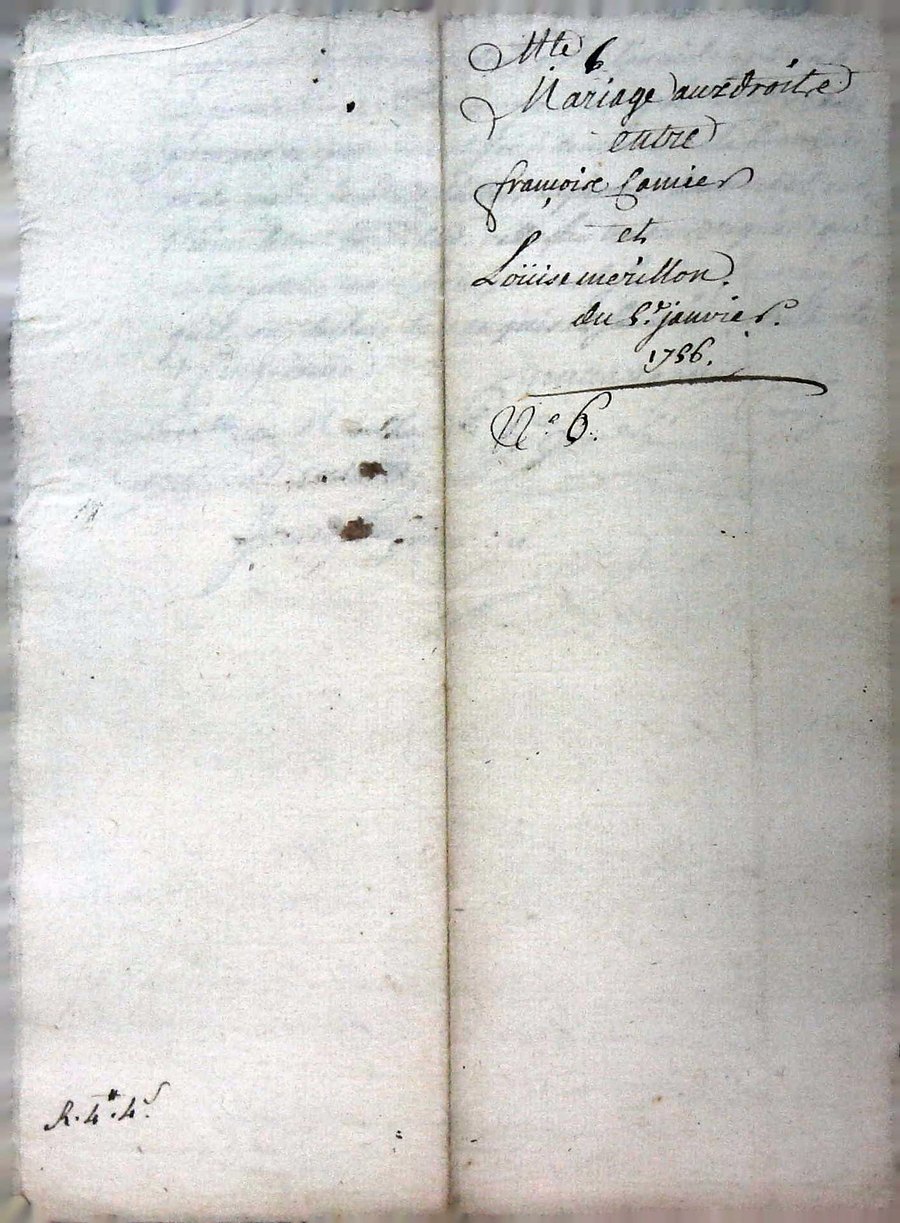 Mte 6
Mariage aux droits
entre
françois Lamier
et
Loüise merillon.
du 5.r janvier.
1756.
N.e 6.
R. 4#. 4s.